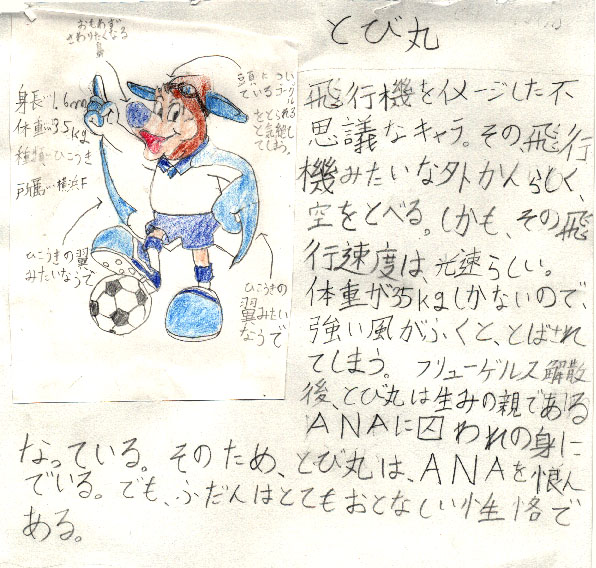 とび丸
おもわず
さわりたくなる
鼻
身長:1.6m
体重:35kg
種類:ひこうき
所属:横浜F
頭についているゴーグル
をとられると気絶してしまう。
ひこうきの翼
みたいなうで
ひこうきの
翼みたい
なうで
飛行機をイメージした不
思議なキャラ。その、飛行
機みたいな外かんらしく、
空をとべる。しかも、その飛
行速度は、光速らしい。
体重が35kgしかないので、
強い風がふくと、とばされ
てしまう。 フリューゲルス解散
後、とび丸は生みの親である
ANAに囚われの身に
なっている。そのため、とび丸は、ANAを恨ん
でいる。でも、ふだんはとてもおとなしい性格で
ある。